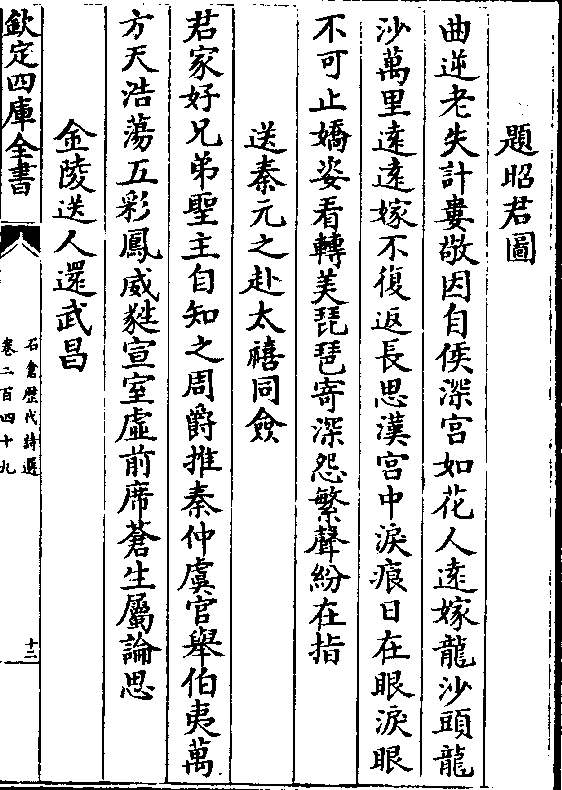 題昭君圖
曲逆老失計婁敬因自侯深宫如花人逺嫁龍沙頭龍
沙萬里逺逺嫁不復返長思漢宫中淚痕日在眼淚眼
不可止嬌姿看轉美琵琶寄深怨繁聲紛在指
送秦元之赴太禧同僉
君家好兄弟聖主自知之周爵推秦仲虞官舉伯夷萬
方天浩蕩五彩鳳威㽔宣室虛前席蒼生屬論思
金陵送人還武昌
欽定四庫全書
石倉歴代詩選
卷二百四十九
十二